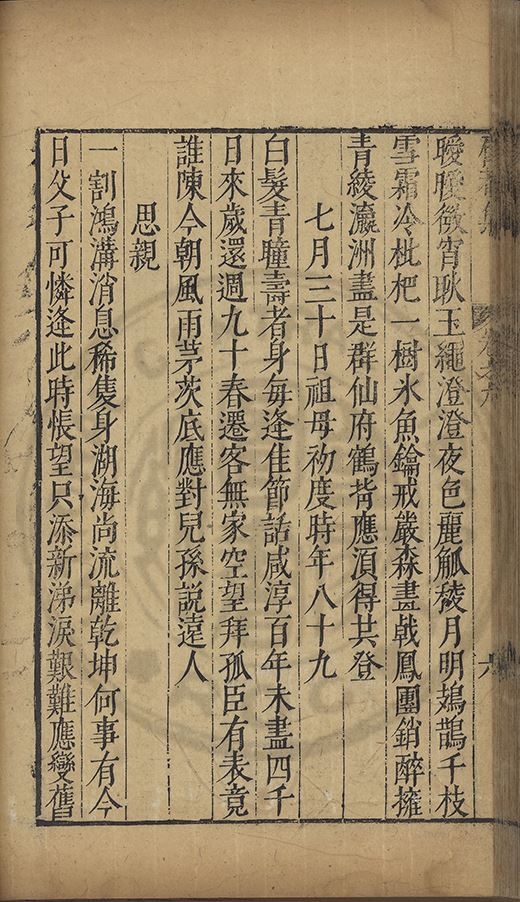 曖曖微宵耿玉繩澄澄夜色麗觚稜月明鳷鵲千枝
雪霜冷枇杷一樹氷魚鑰戒嚴森畫戟鳳團銷醉擁
青綾瀛洲盡是群仙府鶴背應須得共登
七月三十日祖母初度時年八十九
白髮青瞳壽者身每逢佳節話咸淳百年未盡四千
日來歲還週九十春遷客無家空望拜孤臣有表竟
誰陳今朝風雨茅茨底應對兒孫說遠人
思親
一割鴻溝消息稀隻身湖海尚流離乾坤何事有今
日父子可憐逢此時悵望只添新涕淚艱難應變舊